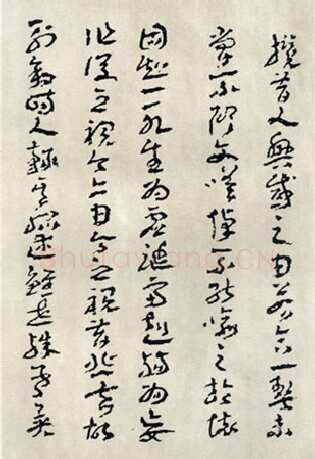 攬昔人興感之由若合一契未
嘗不臨文嗟悼不能喻之於懷
固知一死生為虛誕齊彭殤為妄
作後之視今亦由今之視昔悲夫故
列敘時人錄其所述雖世殊事異
shufawang.CN